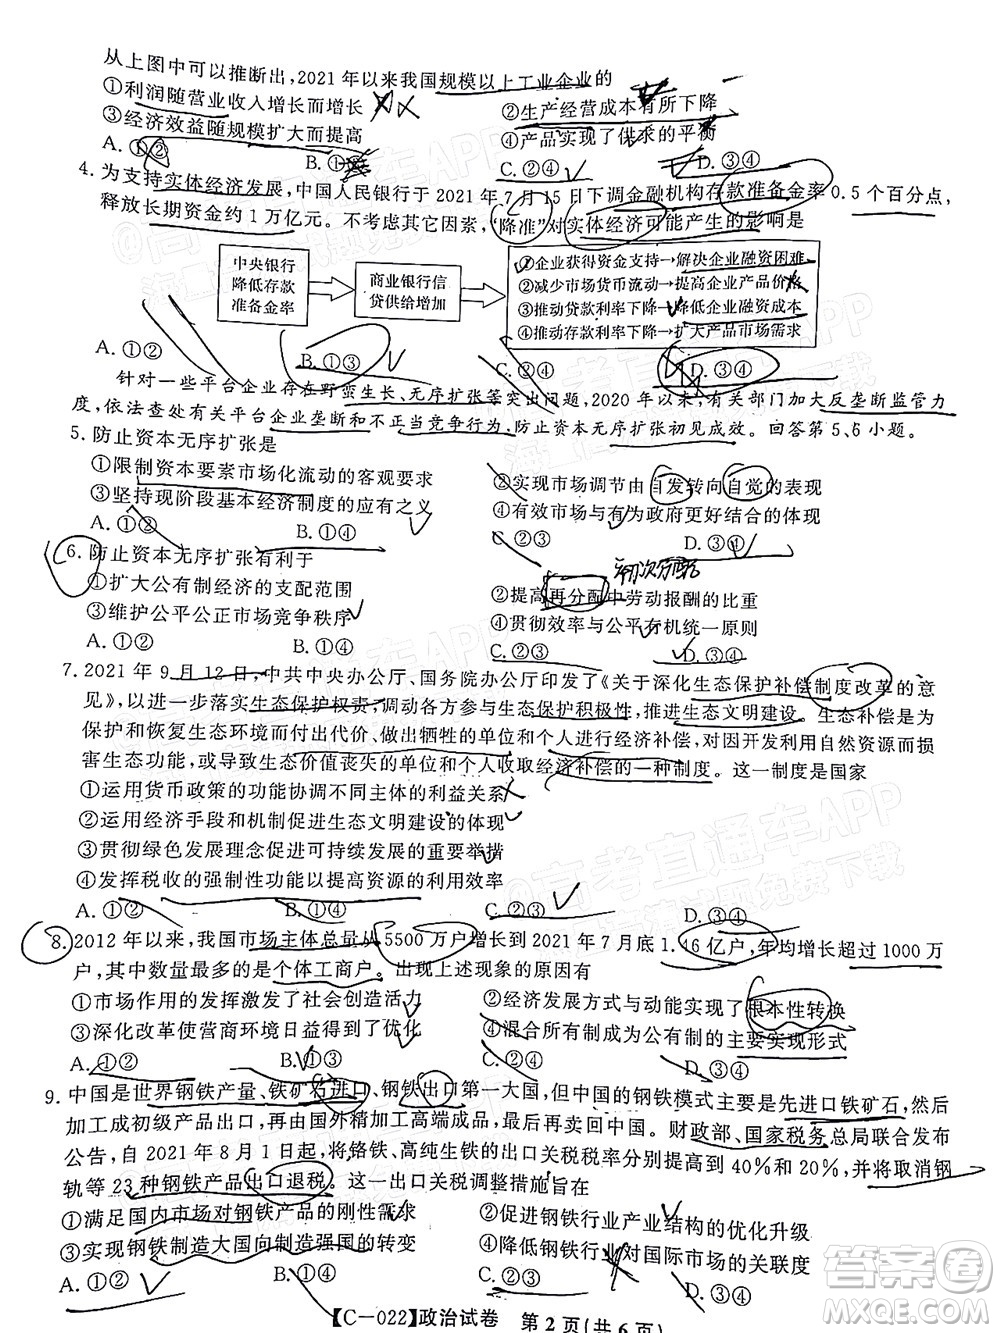 从上图中可以推断出，2021年以来我国规模以上工业企业的
①利润随营业收入增长而增长 ②生产经营成本有所下降
③经济效益随规模扩大而提高 ④产品实现了供求的平衡
A. ①② B. ①③ C. ②④ D. ③④
4. 为支持实体经济发展，中国人民银行于2021年7月15日下调金融机构存款准备金率0.5个百分点，
释放长期资金约1万亿元。不考虑其它因素，“降准”对实体经济可能产生的影响是
中央银行
降低存款
准备金率
商业银行信
贷供给增加
①企业获得资金支持→解决企业融资困难
②减少市场货币流动→提高企业产品价格
③推动贷款利率下降→降低企业融资成本
④推动存款利率下降→扩大产品市场需求
A. ①② B. ①③ C. ②④ D. ③④
针对一些平台企业存在野蛮生长、无序扩张等突出问题，2020年以来，有关部门加大反垄断监管力
度，依法查处有关平台企业垄断和不正当竞争行为，防止资本无序扩张初见成效。回答第5、6小题。
5. 防止资本无序扩张是
①限制资本要素市场化流动的客观要求 ②实现市场调节由自发转向自觉的表现
③坚持现阶段基本经济制度的应有之义 ④有效市场与有为政府更好结合的体现
A. ①② B. ①④ C. ②③ D. ③④
初次分配
6. 防止资本无序扩张有利于
①扩大公有制经济的支配范围 ②提高再分配中劳动报酬的比重
③维护公平公正市场竞争秩序 ④贯彻效率与公平有机统一原则
A. ①② B. ①④ C. ②③ D. ③④
7. 2021年9月12日，中共中央办公厅、国务院办公厅印发了《关于深化生态保护补偿制度改革的意
见》，以进一步落实生态保护权责，调动各方参与生态保护积极性，推进生态文明建设。生态补偿是对
保护和恢复生态环境而付出代价、做出牺牲的单位和个人进行经济补偿，对因开发利用自然资源而
损害生态功能，或导致生态价值丧失的单位和个人收取经济补偿的一种制度。这一制度是国家
①运用货币政策的功能协调不同主体的利益关系
②运用经济手段和机制促进生态文明建设的体现
③贯彻绿色发展理念促进可持续发展的重要举措
④发挥税收的强制性功能以提高资源的利用效率
A. ①② B. ①④ C. ②③ D. ③④
8. 2012年以来，我国市场主体总量从5500万户增长到2021年7月底1.46亿户，年均增长超过1000万
户，其中数量最多的是个体工商户。出现上述现象的原因有
①市场作用的发挥激发了社会创造活力 ②经济发展方式与动能实现了根本性转换
③深化改革使营商环境日益得到了优化 ④混合所有制成为公有制的主要实现形式
A. ①② B. ①③ C. ②④ D. ③④
9. 中国是世界钢铁产量、铁矿石进口、钢铁出口第一大国，但中国的钢铁模式主要是先进口铁矿石，然后
加工成初级产品出口，再由国外精加工高端成品，以高价返销到国内。财政部、国家税务总局联合发布
公告，自2021年8月1日起，将铬铁、高纯生铁的出口关税税率分别提高到40%和20%，并将取消钢
轨等23种钢铁产品出口退税。这一出口关税调整措施旨在
①满足国内市场对钢铁产品的刚性需求 ②促进钢铁行业产业结构的优化升级
③实现钢铁制造大国向制造强国的转变 ④降低钢铁行业对国际市场的关联度
A. ①② B. ①④ C. ②③ D. ③④
【C—022】政治试卷 第2页(共6页)
答案圈
MXQE.COM